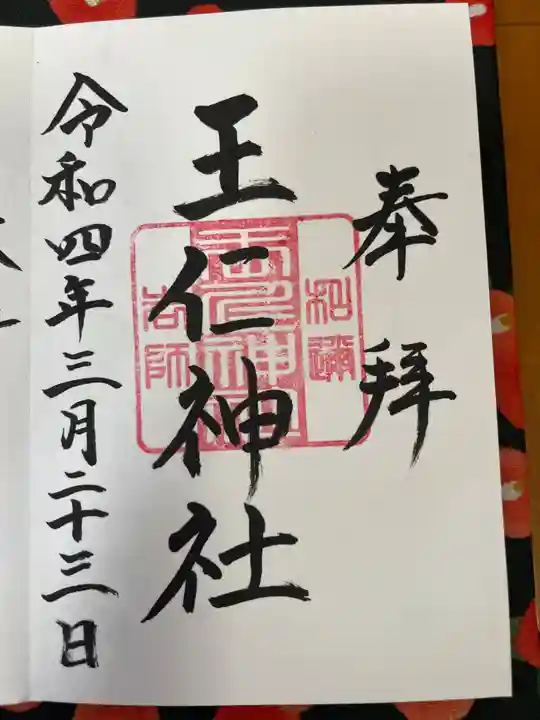 奉拝
王仁神社
令和四年三月二十三日
和邇
吉師